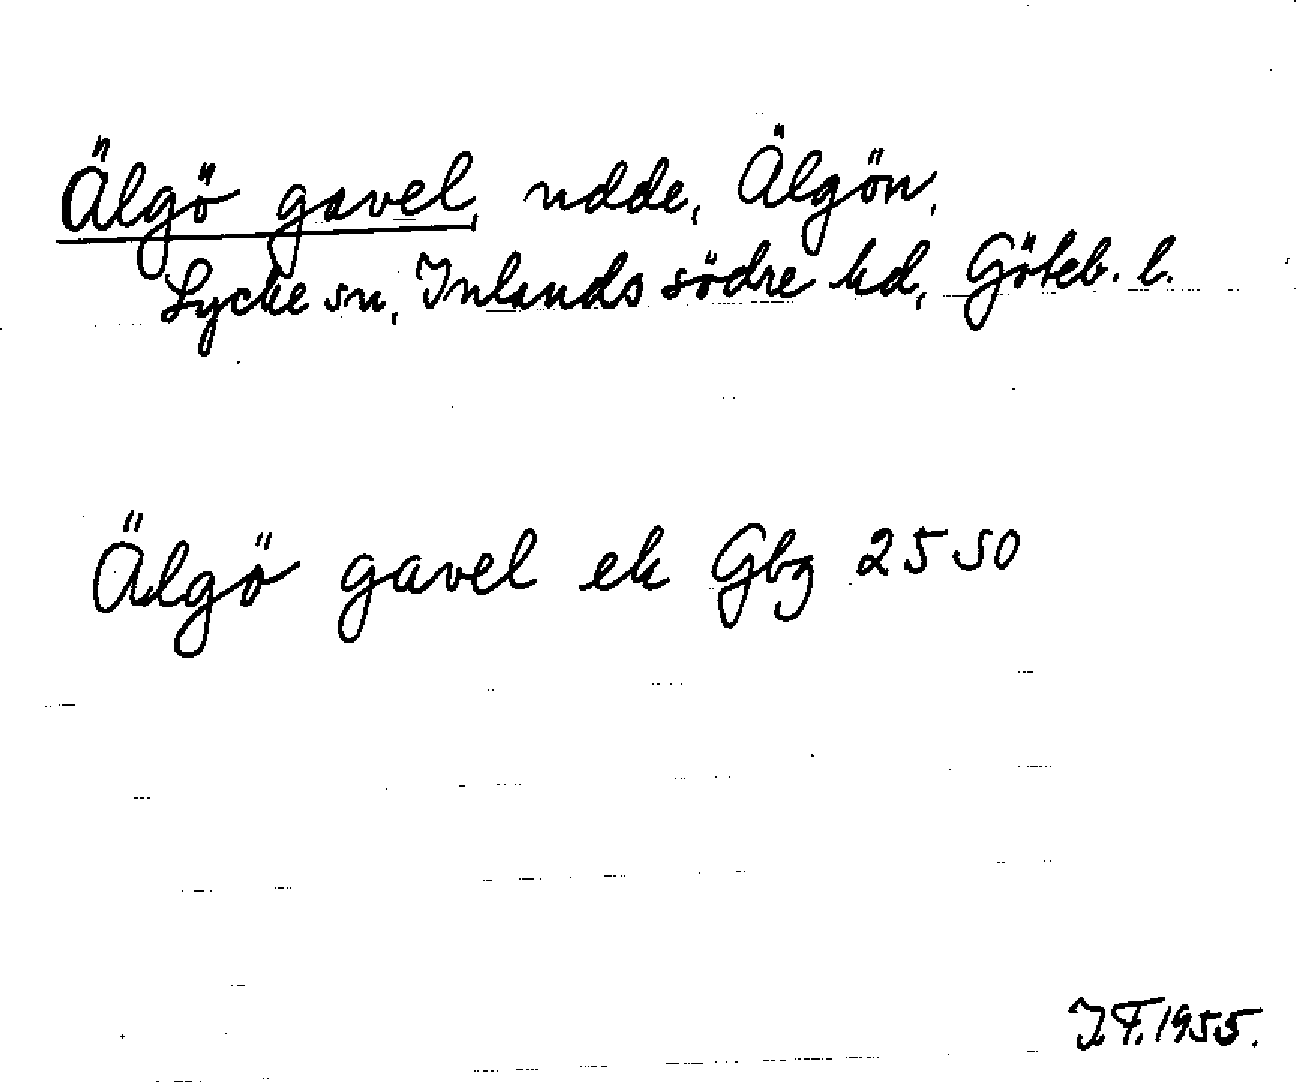 Älgö gavel, udde, Älgön,
Lycke sn, Inlands södre hd, Göteb. l.
Älgö gavel ek Gbg 2550
I.F. 1955.